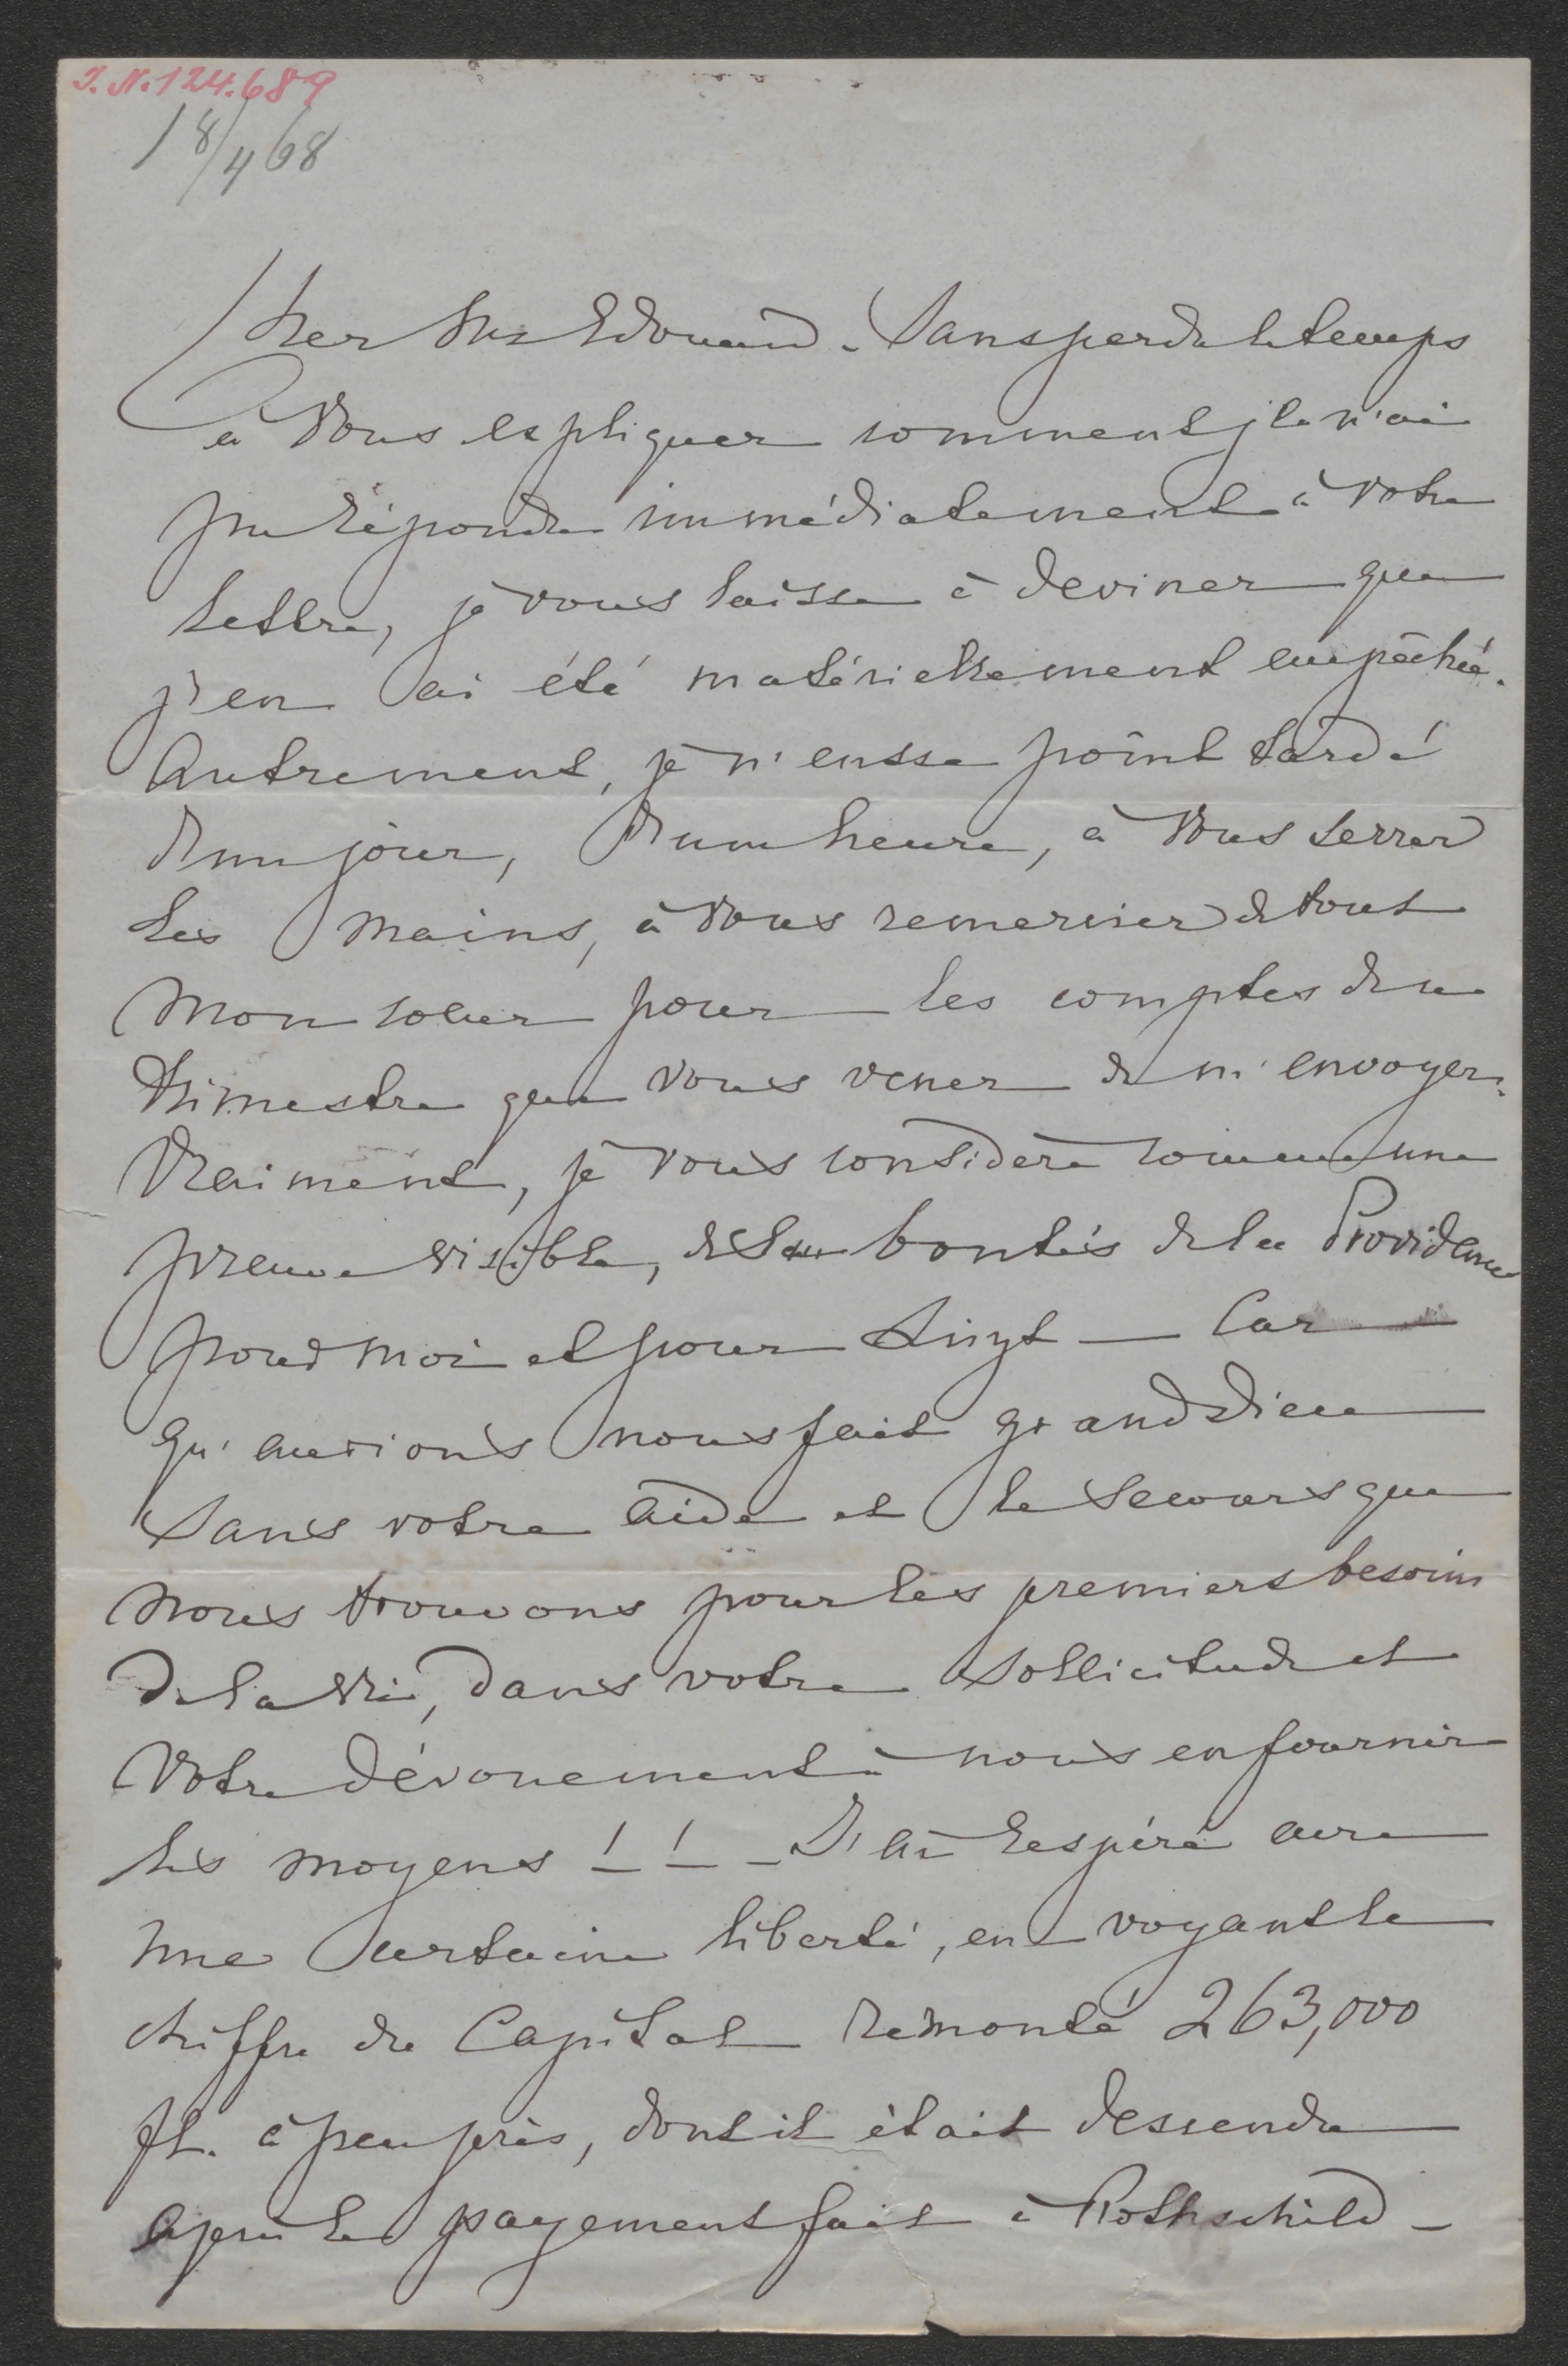 I.N. 124.689
18/4 68
Cher Mr Edouard. Sans perdre le temps
à vous expliquer comment je n'ai
pu répondre immédiatement à votre
lettre, je vous laisse à deviner que
j'en ai été matériellement empêchée.
Autrement, je n'eusse point tardé
d'un jour, d'une heure, à vous serrer
les mains, à vous remercier de tout
mon coeur pour les comptes du
trimestre que vous venez de m'envoyer.
Vraiment, je vous considère comme une
preuve visible, de la bontés de la Providence
pour moi et pour Liszt — Car
qu'aurions nous fait grand Dieu
sans votre aide et le secours que
nous trouvons pour les premiers besoins
de la vie, dans votre sollicitude et
votre dévouement à nous en fournir
les moyens ! ! – J'ai respiré avec
une certaine liberté, en voyant le
chiffre du Capital remonté 263,000
fl. à peu près, dont il était dessendu
après le payement fait à Rothschild –